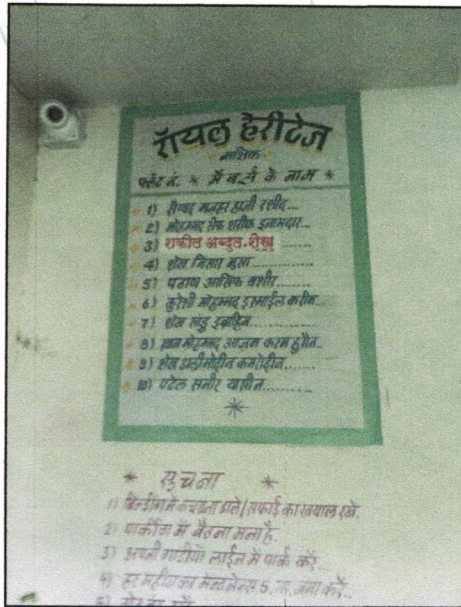 रॉयल हेरीटेज
नाशिक
फ्लॅट नं. * मेंबर्स के नाम *
1) सैय्यद मजहर हाजी रशीद...
2) मोहम्मद सैफ शरीफ इनामदार...
3) शकील अब्दुल. शेख ......
4) शेख निसार मुसा..........
5) पठाण आसिफ बशीर........
6) कुरेशी मोहम्मद इस्माईल करीम...
7) शेख सांडु इब्राहिम.........
8) खान मोहम्मद आज़म करम हुसैन..
9) शेख हाजी मोहीद्दीन कमरोद्दीन......
10) पटेल समीर यासीन........
*
* सुचना *
1) बिल्डींग में कचरा ना डाले / सफाई का खयाल रखे.
2) पार्कींग में बैठना मना है.
3) अपनी गाडीयां लाईन में पार्क करें..
4) हर महीने का मेन्टनेन्स 5. ता. जमा करें..
5)